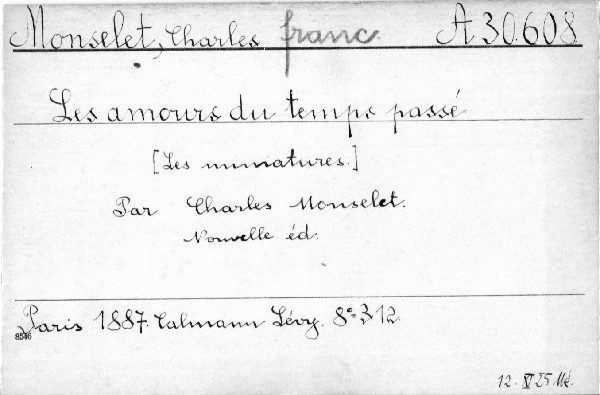 Monselet, Charles franc. A 30.608
Les amours du temps passé
[Les miniatures.]
Par Charles Monselet.
Nouvelle éd.
Paris 1887. Calmann Lévy. 8° 312.
8546
12. XI 25